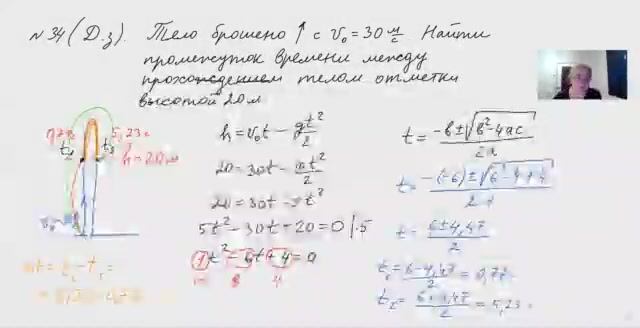 N 34 (Д.з). Тело брошено ↑ с v₀ = 30 м/с. Найти
промежуток времени между
прохождением телом отметки
высотой 20 м
5,23 с
t₂
h = 20 м
h = v₀t − gt²/2
20 = 30t −
20 = 30t −
5t² − 30t − 20 = 0 |:5
1t² − 6t + 4 = 0
t = −в ± √в² − 4ac / 2a
t = −(−6) ± √6² − 4·4 / 2·1
t = 6 ± 4,47 / 2
t₁ = 6 − 4,47 / 2 = 0,77
t₂ = 6 + 4,47 / 2 = 5,23